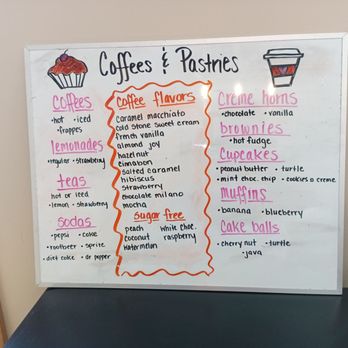 Coffees & Pastries
Coffees
•hot •iced
•frappes
Lemonades
•regular •strawberry
teas
hot or iced
•lemon •strawberry
sodas
•pepsi •coke
•rootbeer •sprite
•diet coke •dr pepper
Coffee flavors
Caramel macchiato
cold stone sweet cream
french vanilla
almond joy
hazelnut
cinnabon
salted caramel
hibiscus
strawberry
chocolate milano
mocha
sugar free
peach white choc.
coconut raspberry
watermelon
Creme horns
•chocolate •vanilla
brownies
•hot fudge
Cupcakes
•peanut butter •turtle
•mint choc. chip •cookies & creme
muffins
•banana •blueberry
Cake balls
•cherry nut •turtle
•java